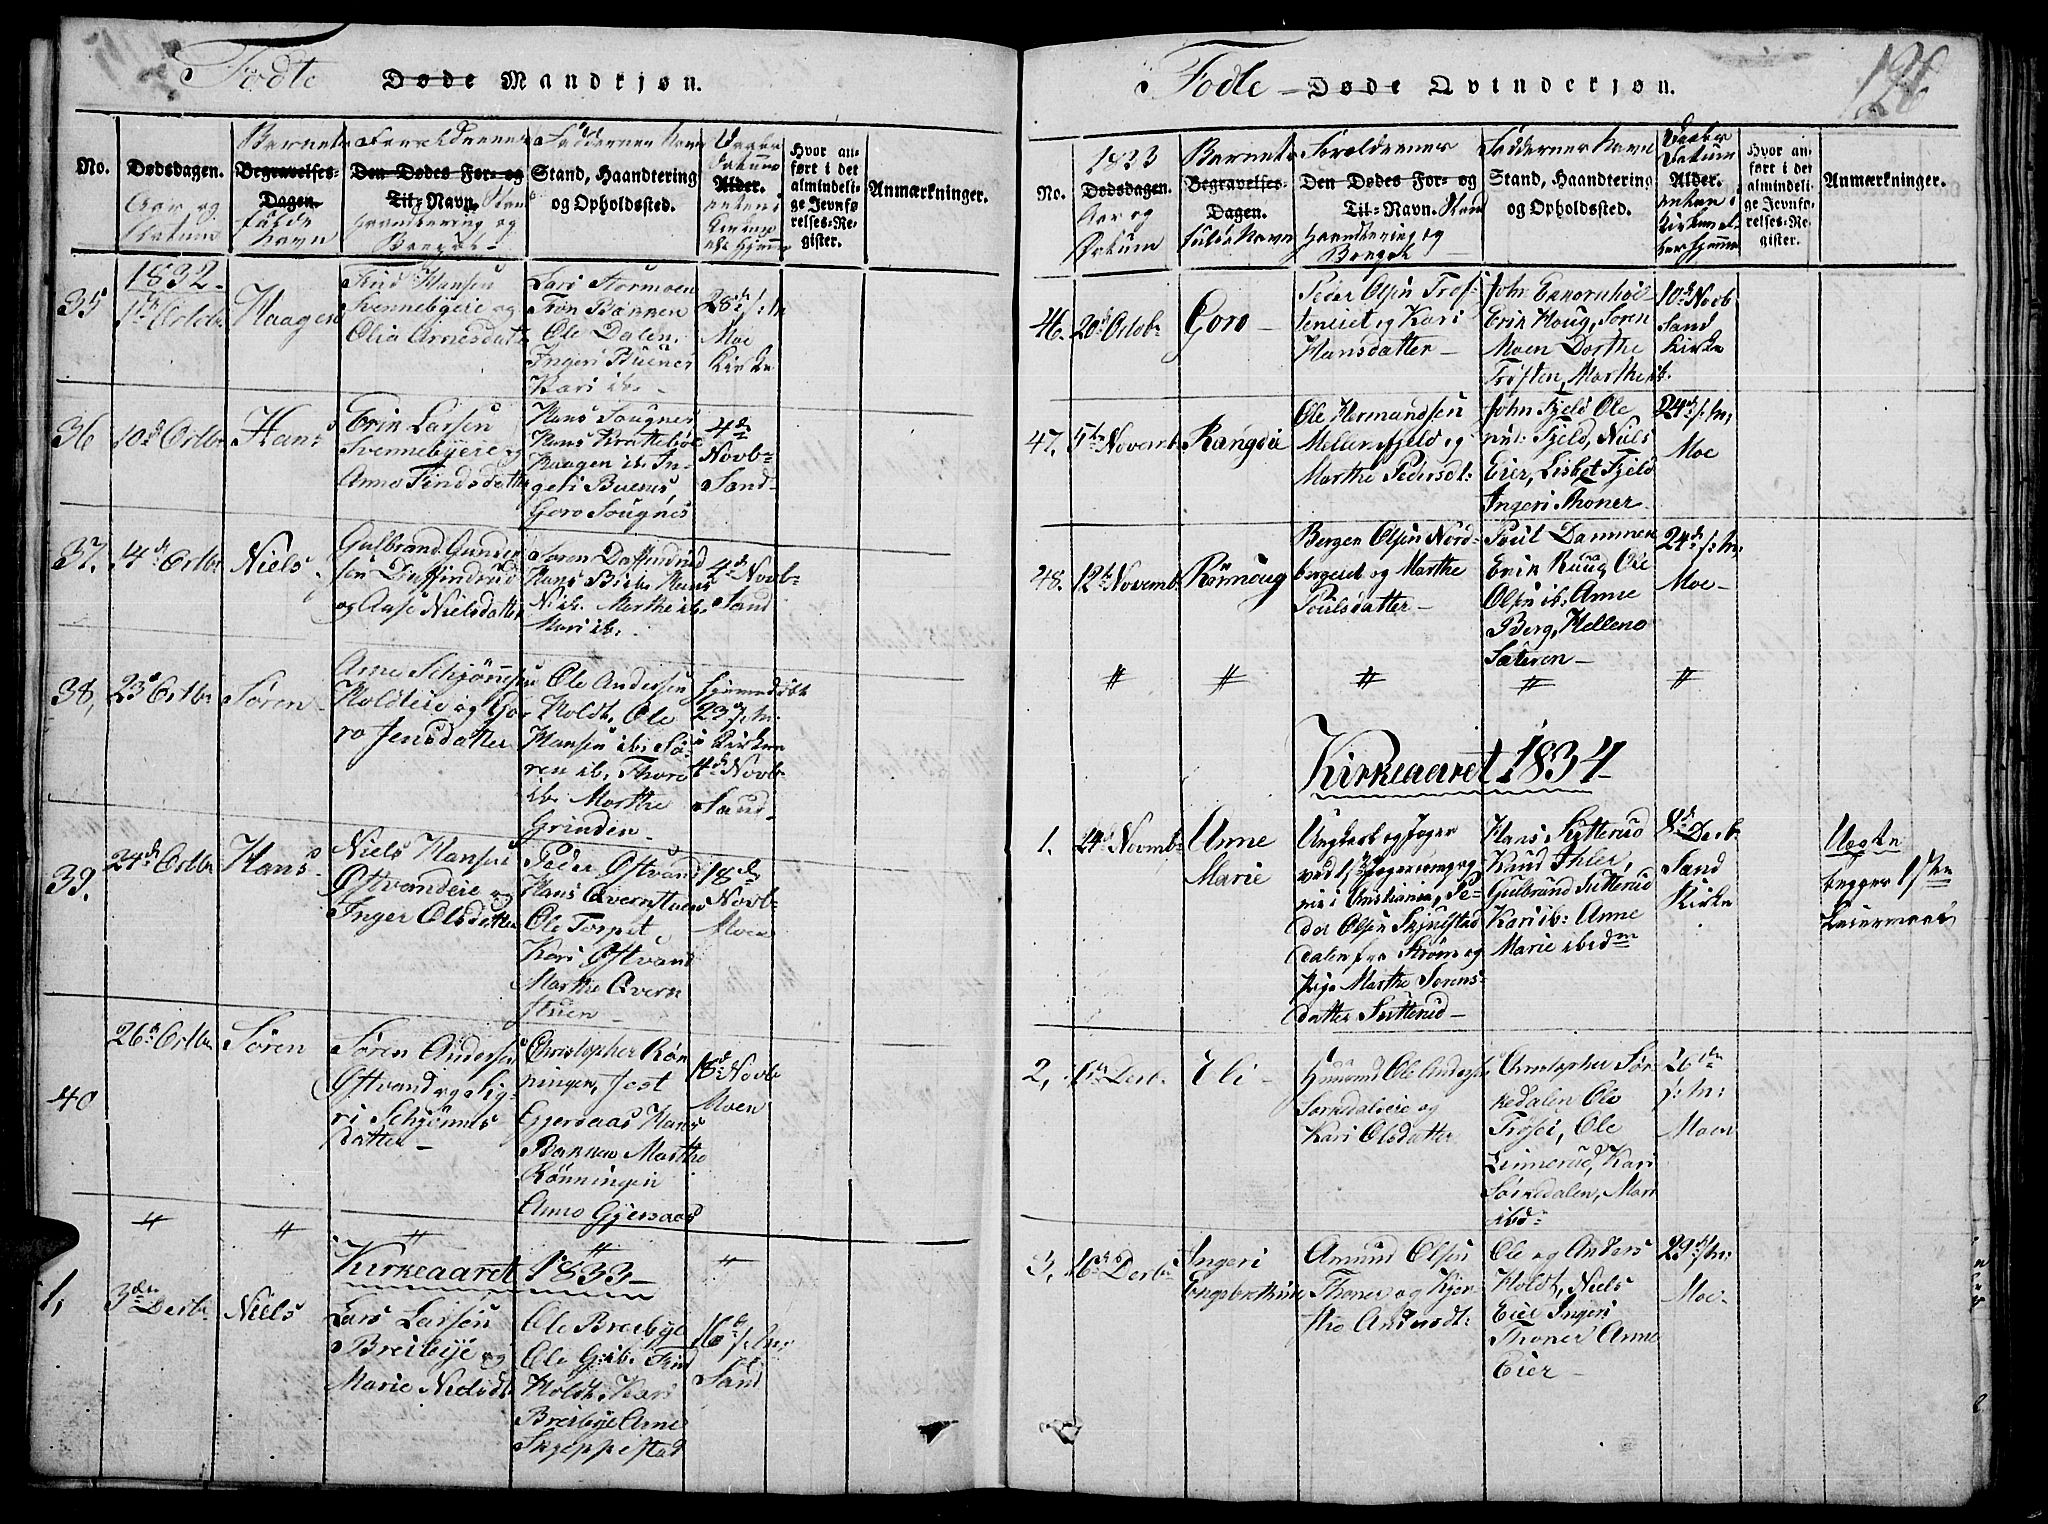 Fødte Døde Mandkjøn.
No.
Dødsdagen.
Aar og
Datum
Barnets
Begravelses-
Dagen.
fulde
Navn
Forældrenes
Den Dødes For- og
Til-Navn. Stand
Haandtering og
Bopæl
Faddernes Navn
Stand, Haandtering
og Opholdssted.
Daabs
Datum
Alder.
enten i
Kirken
Hvor an-
ført i det
almindeli-
ge Jevnfø-
relses-Re-
gister.
Anmærkninger.
35
1832.
1ste Octobr
Haagen
Find Hansen
Svennebyeie og
Olia Arnesdatt
Lars Stormoen
Iver Bakken
Ole Dalen,
Ingeri Buenes
Kari ib.
28de s: m
Moe
Kirke
36
10de Octbr
Hans
Erik Larsen
Svennebyeie og
Anne Findsdatter
Hans Sougnes
Hans Krattebøl
Haagen ib. In-
geri Buenes,
Goro Sougnes
4de
Novbr
Sand
37.
14de Octbr
Niels
Gulbrand Gunder
sen Daffindrud
og Aase Nielsdatter
Søren Daffindrud
Hans Bieb. Hans
N ib. Marthe ib.
Mari ib.
4de Novbr
Sand
38,
23de Octbr
Søren
Arne Schjønnesen
Holdteie og Go-
ro Jensdatter
Ole Andersen
Holdt, Ole
Hansen ib. Sø-
ren ib. Thore
ib. Marthe
Grinden
Hjemmedøbt
23 s. m.
i Kirken
4de Novb
Sand
39.
24de Octbr
Hans
Niels Hansen
Østvandeie og
Inger Olsdatter
Peder Østvand
Hans Qvernstuen
Ole Torpet,
Kari Østvand
Marthe Qvern
stuen
18de
Novb
Moen
40
26de Octbr
Søren
Søren Andersen
Østvand og Sig-
ri Schjønnes
datter
Christopher Røn
ningen, Jost
Gjersaas Hans
Bakken Marthe
Rønningen
Anne Gjersaas
18de Novb
Moen
Kirkeaaret 1833
1,
3die Decbr
Niels
Lars Larsen
Breibye og
Marie Nielsdt
Ole Breibye
Ole G. ib. Find
Holdt, Kari
Breibye Arne
Skjeppestad
16de s: m:
Sand
Fødte Døde Qvindekjøn.
126
No.
1833
Dødsdagen.
Aar og
Datum
Barnets
Begravelses-
Dagen.
fulde Navn
Forældrenes
Den Dødes For- og
Til-Navn. Stand
Haandtering og
Bopæl
Faddernes Navn
Stand, Haandtering
og Opholdssted.
Daabs
Datum
Alder.
enten i
Kirken el
ler Hjemme
Hvor an-
ført i det
almindeli-
ge Jevnfø-
relses-Re-
gister.
Anmærkninger.
46.
20de Octobr
Goro
Peder Olsen Trøf-
teneiet og Kari
Hansdatter
John Ekornhol
Erik Houg, Søren
Moen Dorthe
Trøften, Marthe ib.
10de Novb
Sand
Kirke
47.
5te Novemb
Rangdie
Ole Hermandsen
Mellemfjeld og
Marthe Pedersdt:
John Fjeld Ole
Fjeld, Niels
Eier, Lisbet Fjeld
Ingeri Thoner
24de s: m:
Moe
48.
12te Novemb
Rønnoug
Bergen Olsen Nord-
bergeiet og Marthe
Poulsdatter
Poul Dammen
Erik Ruud, Ole
Olsen ib. Anne
Berg, Hellene
Sæteren
24de s: m:
Moe
Kirkeaaret 1834
1.
24de Novmbr
Anne
Marie
Ungkarl og Jæger
ved
i Christiania, Pe-
der Olsen Skjulstad
dalen fra Strøm og
Pige Marthe Sørens-
datter Sætterud
Hans Sætterud
Knud Ihler,
Gulbrand Sætterud
Kari ib: Anne
Marie ibidm
8de Decb
Sand
Kirke
Uægte
begges 1ste
Leiermaal
2,
1ste Decb.
Eli
Huusmd Ole Anders
Sørkedaleie og
Kari Olsdatter
Christopher Sør-
kedalen Ole
Trøsei, Ole
Linnerud, Kari
Sørkedalen, Mari
ibd:
26de
s: m:
Moen
3,
16de Decbr
Ingeri
Engebrethine
Amund Olsen
Thoner og Kjer-
stie Andersdt:
Ole og Anders
Holdt, Niels
Eier Ingeri
Thoner Anne
Eier
29de s: m:
Moe